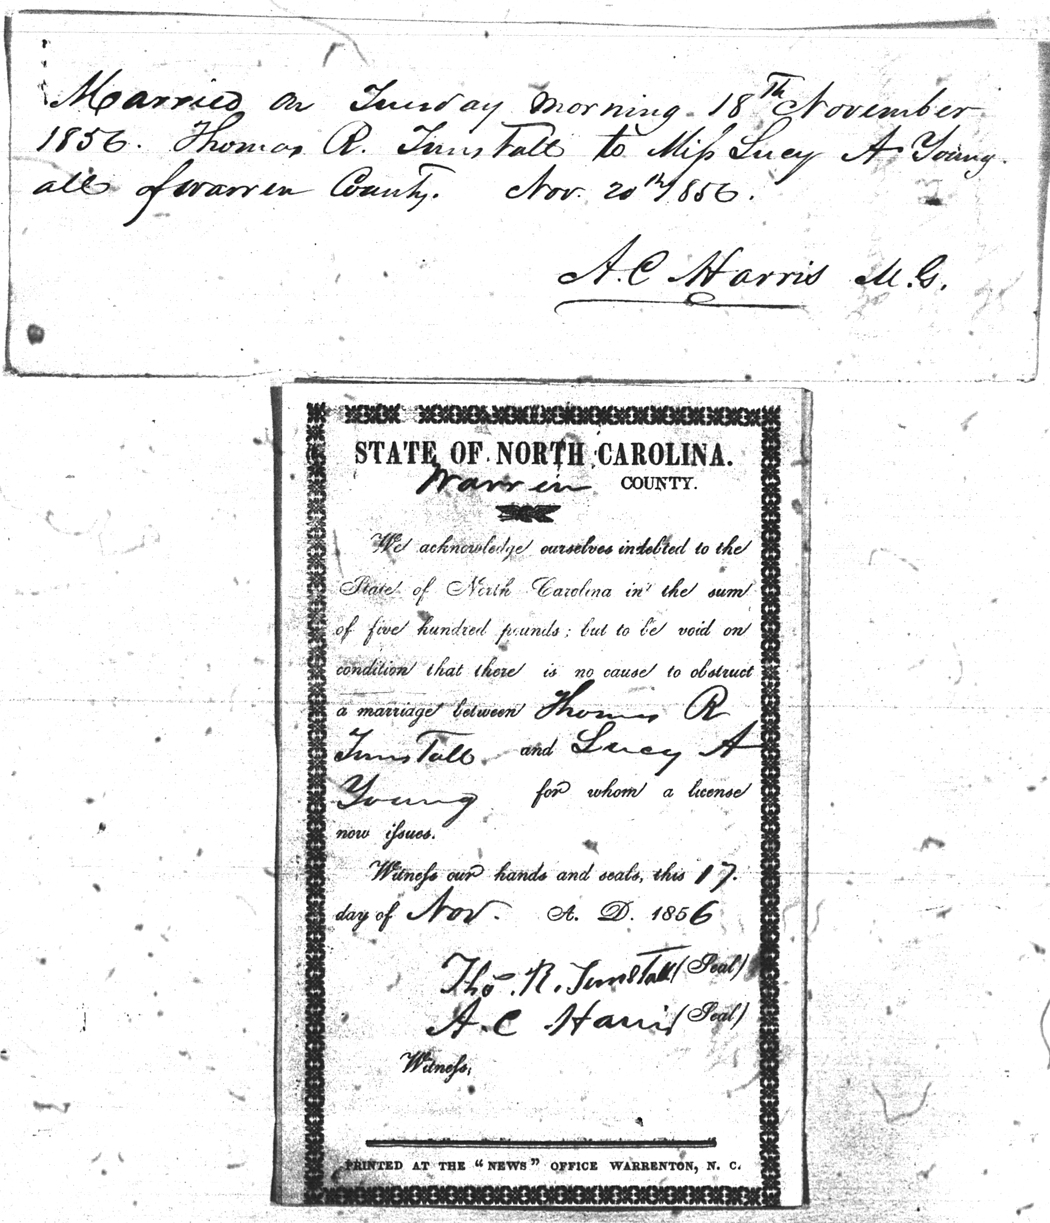 Married on Tuesday morning 18th November
1856. Thomas R. Tunstall to Miss Lucy A Young.
all of Warren County. Nov. 20th 1856.
A. C Harris M. G.
STATE OF NORTH CAROLINA.
Warren COUNTY.
We acknowledge ourselves indebted to the
State of North Carolina in the sum
of five hundred pounds; but to be void on
condition that there is no cause to obstruct
a marriage between Thomas R
Tunstall and Lucy A
Young for whom a license
now issues.
Witness our hands and seals, this 17.
day of Nov. A. D. 1856
Tho. R. Tunstall (Seal)
A. C Harris (Seal)
Witness,
PRINTED AT THE "NEWS" OFFICE WARRENTON, N. C.